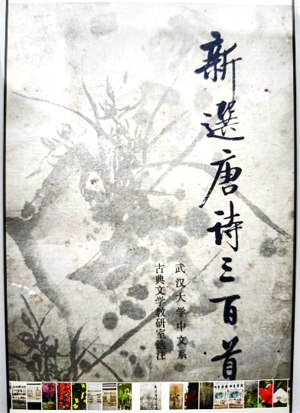 新選唐诗三百首
武汉大学中文系
古典文学教研室选注